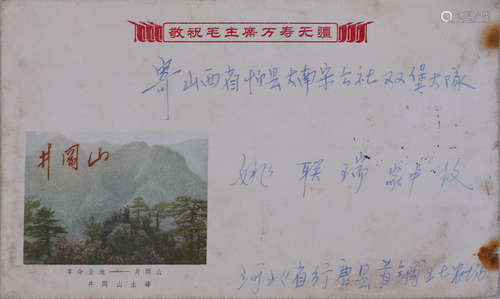 敬祝毛主席万寿无疆
寄山西省忻县大南宋公社双堡大队
姚联瑞家中收
井冈山
革命圣地——井冈山
井冈山主峰
河北省行唐县